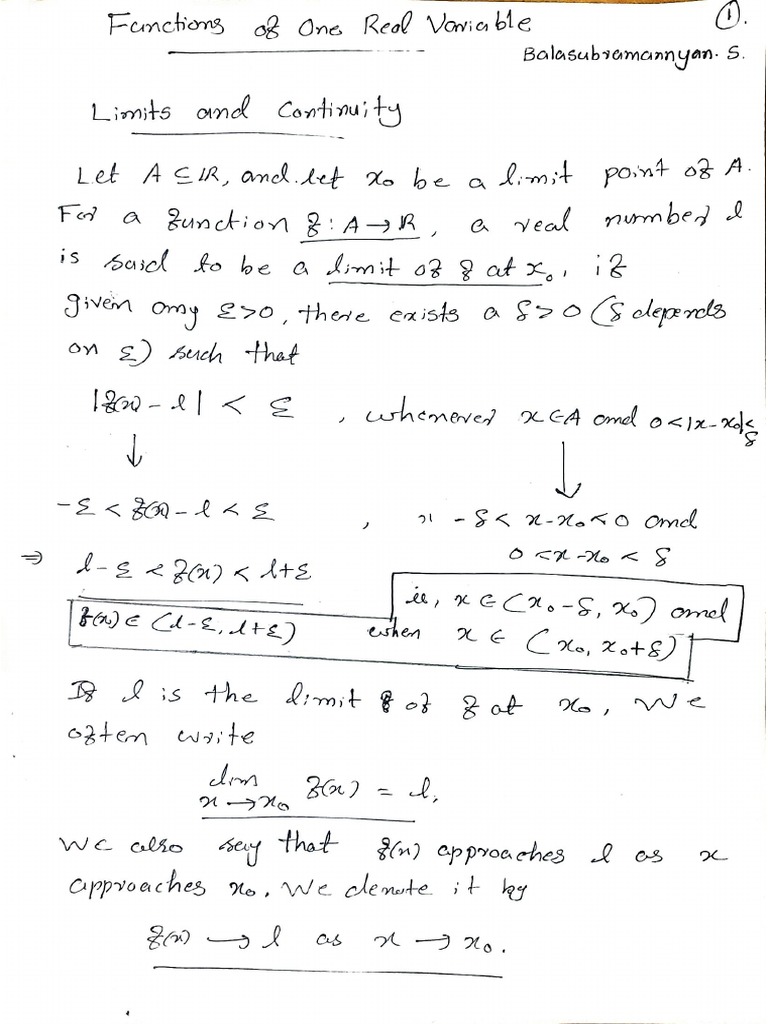 Functions of One Real Variable
①.
Balasubramannyan. S.
Limits and Continuity
Let A ⊆ ℝ, and let x₀ be a limit point of A.
For a function f : A → ℝ, a real number l
is said to be a limit of f at x₀, if
given any ε>0, there exists a δ>0 (δ depends
on ε) such that
|f(x) - l| < ε , whenever x ∈ A and 0<|x-x₀|<δ
↓ ↓
-ε < f(x) - l < ε , -δ < x-x₀ < 0 and
0 < x-x₀ < δ
⇒ l-ε < f(x) < l+ε
ie, x ∈ (x₀-δ, x₀) and
f(x) ∈ (l-ε, l+ε) when x ∈ (x₀, x₀+δ)
If l is the limit of f at x₀, We
often write
lim f(x) = l,
x → x₀
We also say that f(x) approaches l as x
approaches x₀. We denote it by
f(x) → l as x → x₀.